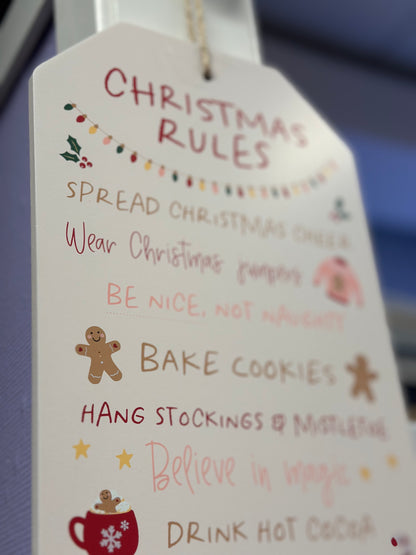 CHRISTMAS
RULES
SPREAD CHRISTMAS CHEER
Wear Christmas jumpers
BE NICE, NOT NAUGHTY
BAKE COOKIES
HANG STOCKINGS & MISTLETOE
Believe in magic
DRINK HOT COCOA